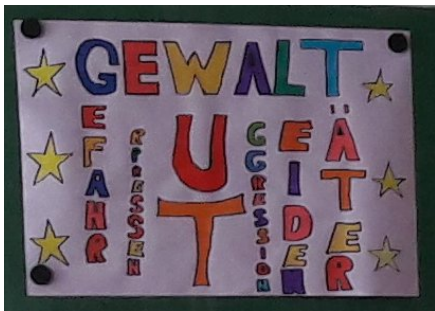 GEWALT
EFAHR
RPRESSEN
UT
GGRESSION
EIDEN
ÄTER